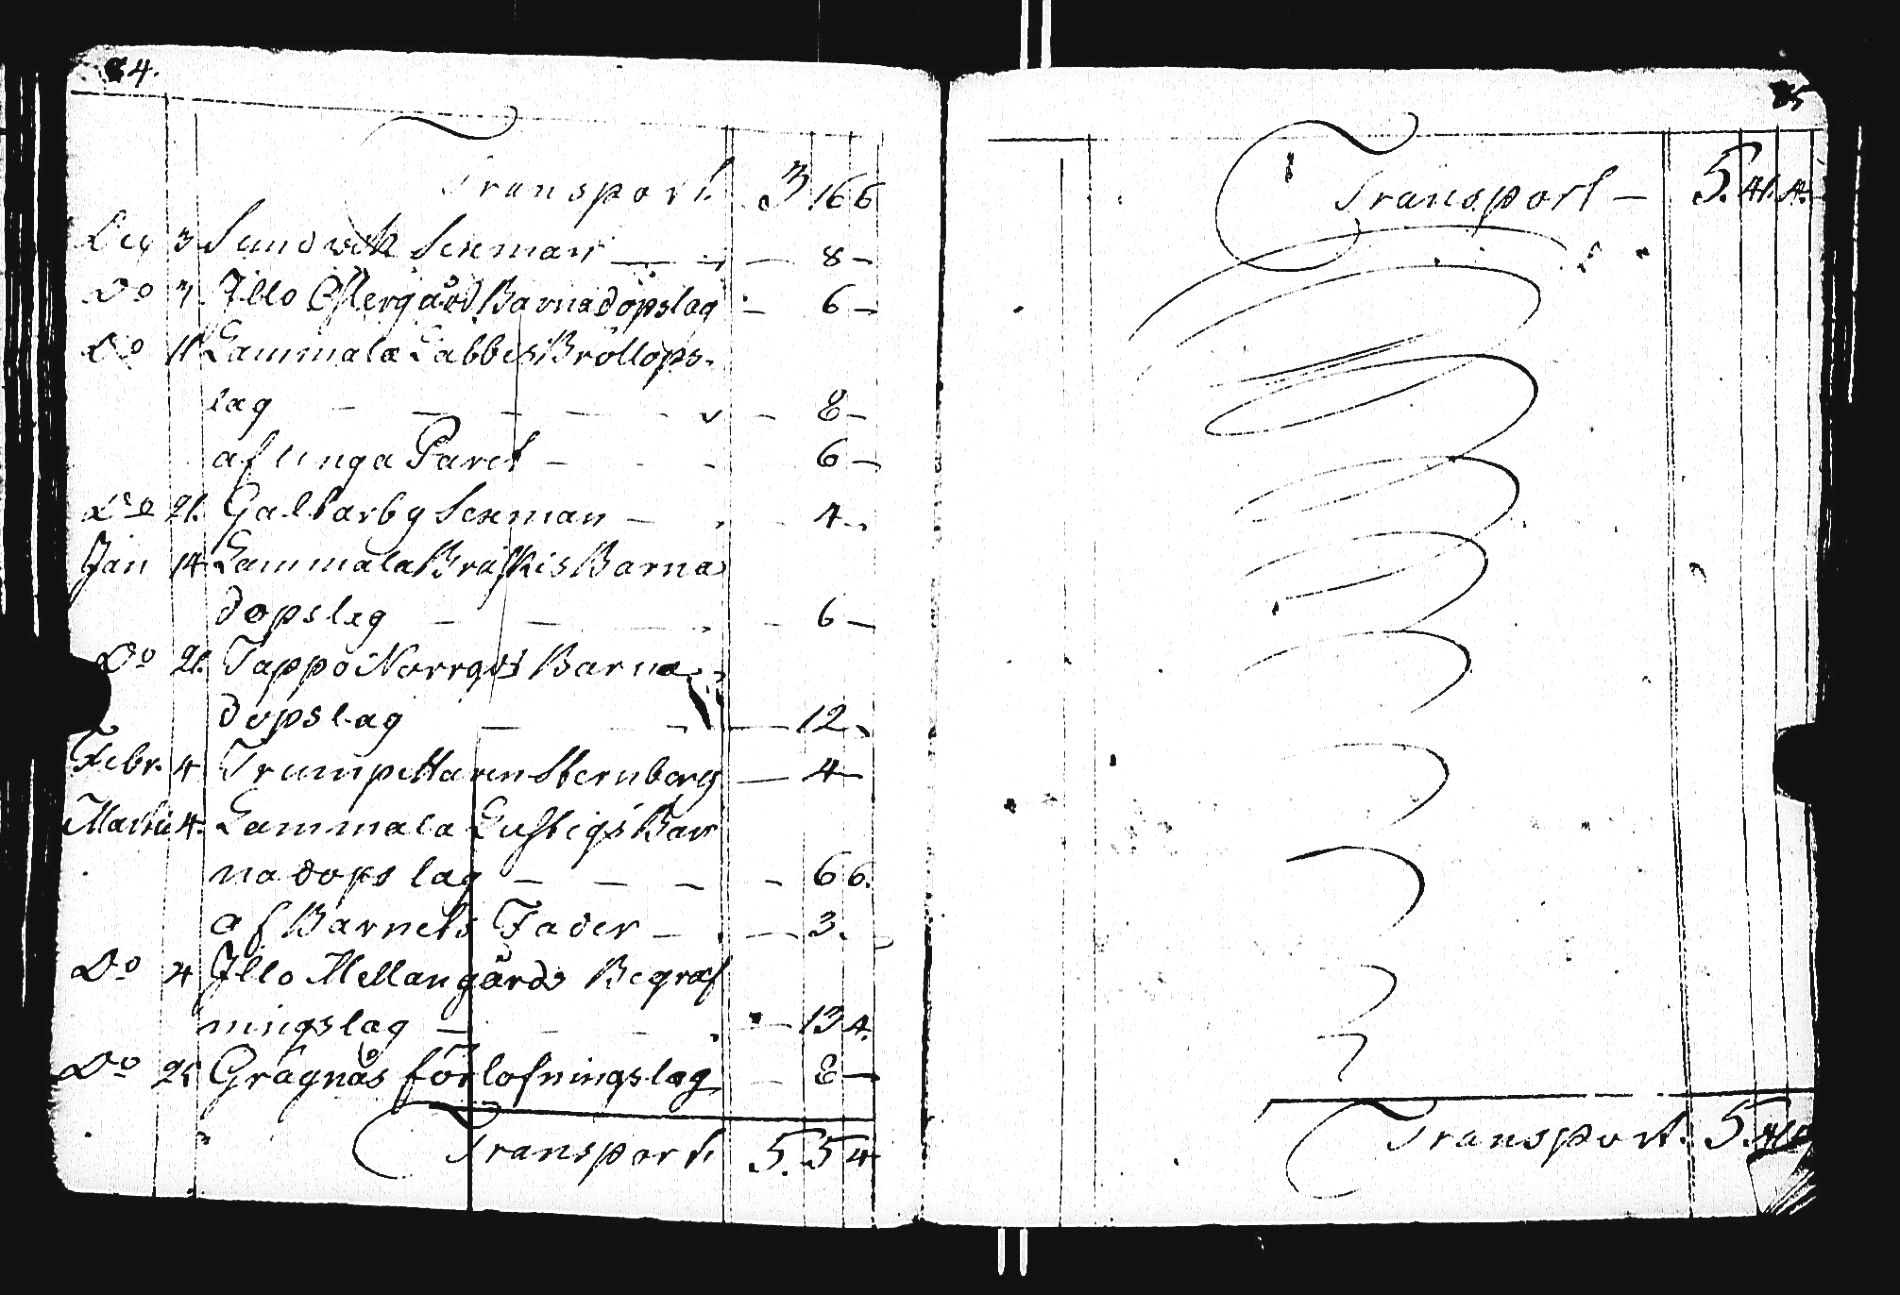 84.
Transport. 3 16 6
Dec 3 Sundvik Sexman — 8 —
Do 3. Illo Östergård Barnadöpslag — 6 —
Do 11 Gammala Labbis Bröllops-
lag — — — — — 8 —
af unga Paret — - - 6 —
Do 21. Galtarby Sexman — - - 4 -
Jan 14 Gammala Bräskis Barna
dopslag — — — - 6 —
Do 21. Tappo Norrgds Barna
dopslag — - - — 12 -
Febr. 4. Trumpettaren Sternberg — 4 —
Martii 4. Gammala Lustigs Bar
nadops lag — — — - 6 6.
af Barnets Fader — - — 3.
Do 4 Illo Mellangårds Begraf
ningslag — - - — 13 4.
Do 25 Grågnäs förlofningslag - 8 —
Transport. 5. 5 4
85
Transport — 5. 41. 4.
Transport. 5.